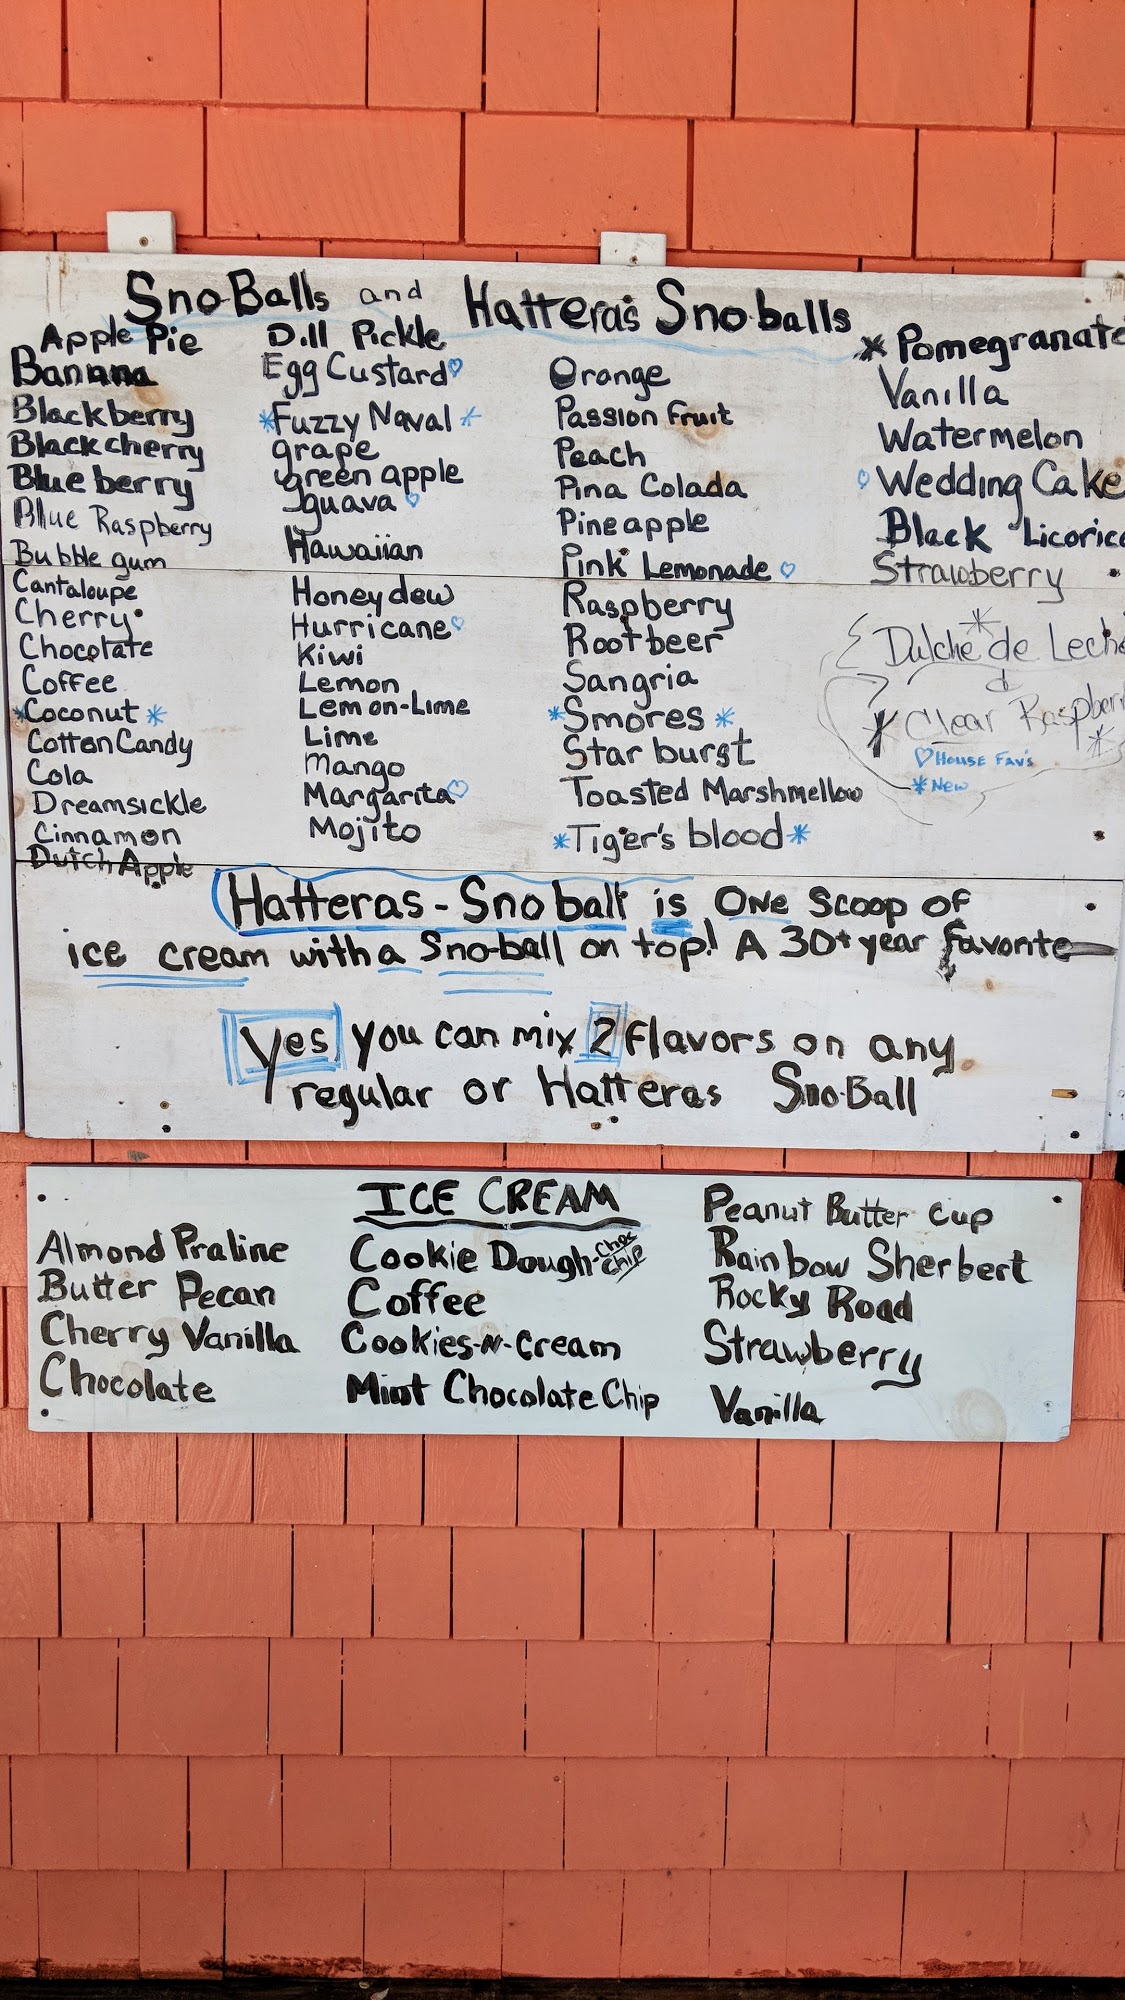 SnoBalls and Hatteras Sno-balls
Apple Pie
Banana
Blackberry
Black cherry
Blueberry
Blue Raspberry
Bubble gum
Cantaloupe
Cherry
Chocolate
Coffee
*Coconut *
Cotton Candy
Cola
Dreamsickle
Cinnamon
Dutch Apple
Dill Pickle
Egg Custard♡
*Fuzzy Naval *
grape
green apple
guava ♡
Hawaiian
Honeydew
Hurricane♡
Kiwi
Lemon
Lemon-Lime
Lime
Mango
Margarita♡
Mojito
Orange
Passion Fruit
Peach
Pina Colada
Pineapple
Pink Lemonade ♡
Raspberry
Rootbeer
Sangria
*Smores *
Starburst
Toasted Marshmellow
*Tiger's blood*
* Pomegranate
Vanilla
Watermelon
♡ Wedding Cake
Black Licorice
Strawberry
*
Dulche de Leche
&
* Clear Raspberry
*
♡House Fav's
*New
Hatteras-Snoball is One Scoop of
ice cream with a Sno-ball on top! A 30+ year favorite
Yes you can mix 2 flavors on any
regular or Hatteras SnoBall
ICE CREAM
Almond Praline
Butter Pecan
Cherry Vanilla
Chocolate
Cookie Dough-choc chip
Coffee
Cookies-N-Cream
Mint Chocolate Chip
Peanut Butter cup
Rainbow Sherbert
Rocky Road
Strawberry
Vanilla